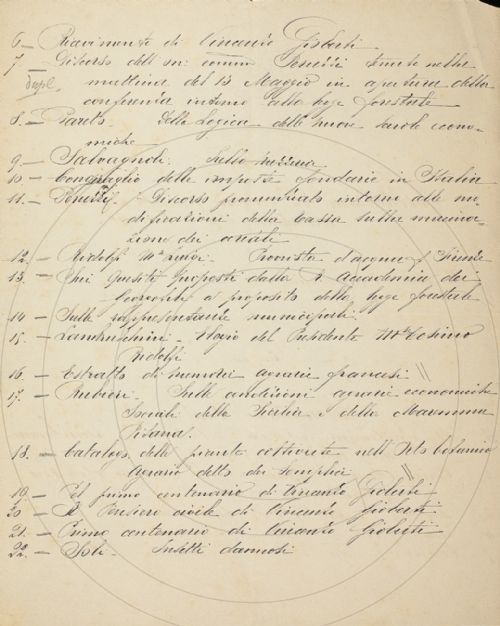 6._ Ricevimento di Vincenzo Gioberti
7_ Discorso dell' on: comm Peruzzi tenuto nella
dupl. mattina del 13 Maggio in apertura della
conferenza intorno alla legge forestale
8._ Pareto. Della Logica delle nuove scuole econo-
miche
9_ Salvagnoli. Sulla mezzeria
10._ Conguaglio delle imposte fondarie in Italia
11._ Peruzzi. Discorso pronunciato intorno alle mo-
dificazioni della tassa sulla macina-
zione dei cereali
12._ Ridolfi Mse Luigi. Provvista d'acqua p Firenze
13._ Sui quesiti proposti dalla R Accademia dei
Georgofili a proposito della legge forestale
14_ Sulle rappresentanze municipali.
15._ Lambruschini. Elogio del Presidente Mse Cosimo
Ridolfi.
16._ Estratto di memorie agrarie francesi "
17._ Sulle condizioni agrarie economiche
Sociali della Sicilia e della Maremma
Pisana.
18._ Catalogo delle piante coltivate nell' Orto botanico
Agrario detto dei Semplici "
19._ Il primo centenario di Vincenzo Gioberti
20_ Il Pensiero civile di Vincenzo Gioberti
21._ Primo centenario di Vincenzo Gioberti
22._ Soli. Insetti dannosi